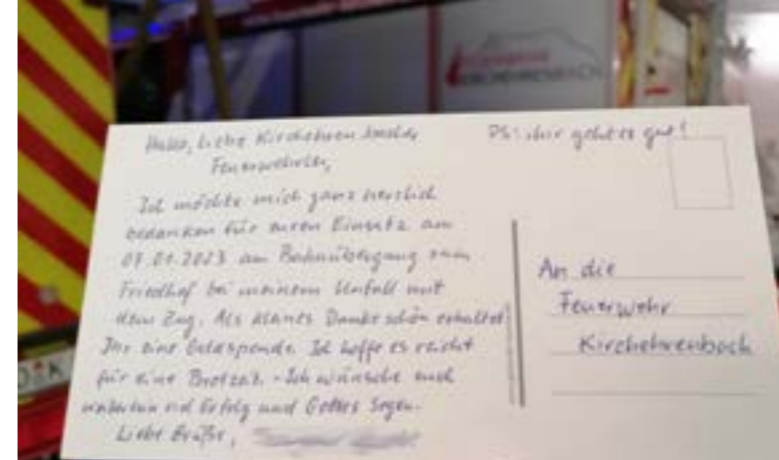 FEUERWEHR
KIRCHEHRENBACH
Hallo, liebe Kirchehrenbacher
Feuerwehrler,
Ich möchte mich ganz herzlich
bedanken für euren Einsatz am
07.01.2023 am Bahnübergang zum
Friedhof bei meinem Unfall mit
dem Zug. Als kleines Dankeschön erhaltet
Ihr eine Geldspende. Ich hoffe es reicht
für eine Brotzeit. - Ich wünsche euch
weiterhin viel Erfolg und Gottes Segen.
Liebe Grüße,
PS: mir geht es gut!
An die
Feuerwehr
Kirchehrenbach